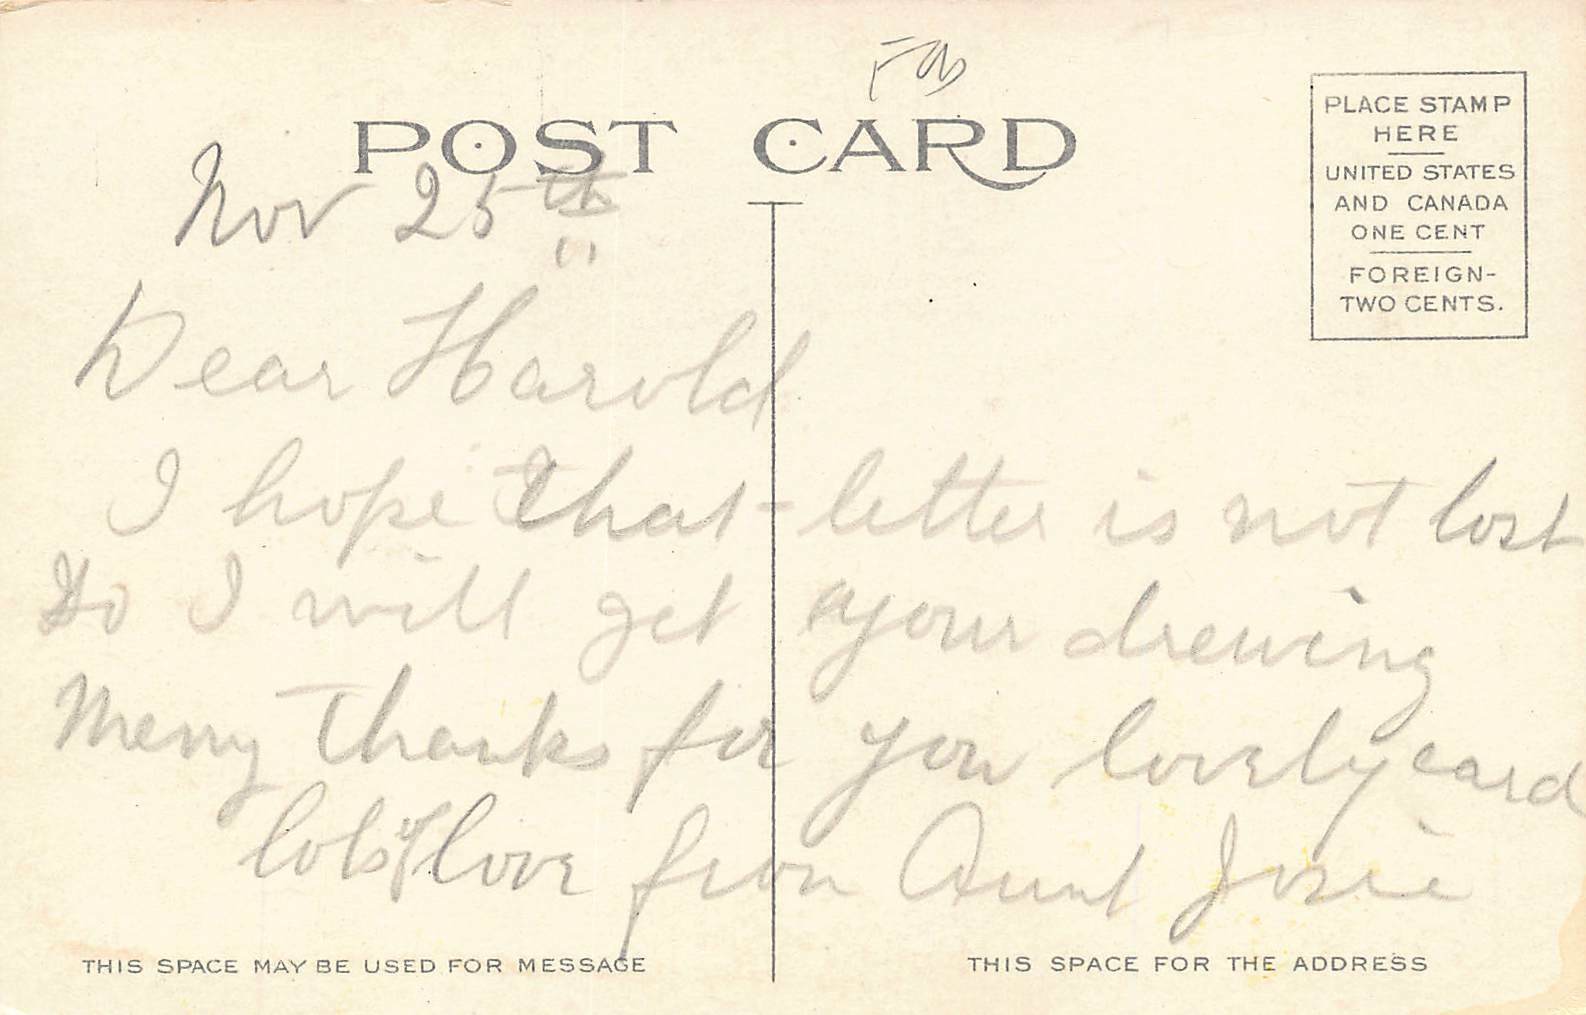 POST CARD
PLACE STAMP
HERE
UNITED STATES
AND CANADA
ONE CENT
FOREIGN-
TWO CENTS.
Nov 25th
Dear Harold
I hope that letter is not lost
So I will get your drewing
Merry thanks for you lovely card
lots of love from Aunt Josie
THIS SPACE MAY BE USED FOR MESSAGE
THIS SPACE FOR THE ADDRESS